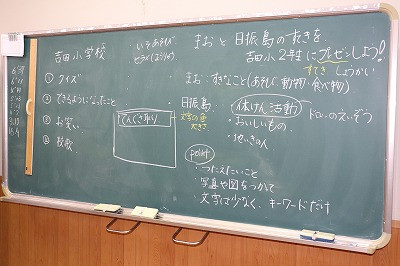 吉田小学校
① クイズ
② できるようになったこと
③ お笑い
④ 校歌
・いそあそび
でんごきかり
まおと日振島のすきを、
吉田小2年生にプレゼンしよう!
すてき しょうかい
まお:すきなこと(あそび、動物・食べ物)
日振島:体けん活動
文字の色
大きさ
ドローンのえいぞう
・おいしいもの
・地いきの人
point
・つたえたいこと
・写真や図をつかって
・文字は少なく、キーワードだけ